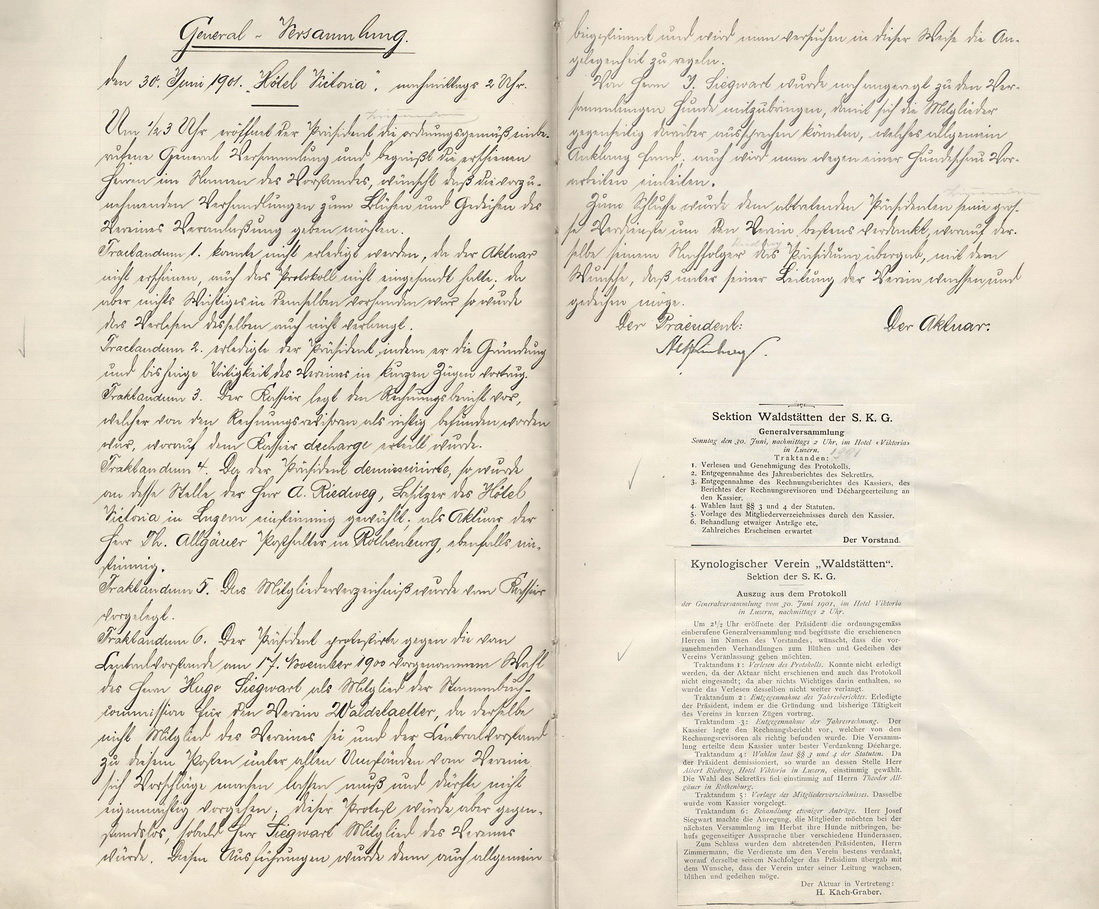 General-Versammlung.
den 30. Juni 1901. "Hôtel Victoria", nachmittags 2 Uhr.
Um 1/2 3 Uhr eröffnet der Präsident die ordnungsgemäß einbe-
rufene General Versammlung und begrüßt die erschienen
Herren im Namen des Vorstandes, wünscht daß die vorzu-
nehmenden Verhandlungen zum Blühen und Gedeihen des
Vereines Veranlaßung geben möchten.
Tractandum 1. konnte nicht erledigt werden, da der Aktuar
nicht erschienen, auch das Protokoll nicht eingesandt hatte. da
aber nichts Wichtiges in demselben vorhanden war so wurde
das Verlesen desselben auch nicht verlangt.
Tractandum 2. erledigte der Präsident, indem er die Gründung
und bisherige Tätigkeit des Vereins in kurzen Zügen vortrug.
Traktandum 3. Der Kassier legt den Rechnungsbericht vor,
welcher von den Rechnungsrevisoren als richtig befunden worden
war, worauf dem Kassier decharge erteilt wurde.
Traktandum 4. Da der Präsident demissionirte, so wurde
an desse Stelle der Herr A. Riedweg, Besitzer des Hôtel
Victoria in Luzern einstimmig gewählt. als Aktuar der
Herr Th. Allgäuer Posthalter in Rothenburg, ebenfalls ein-
stimmig.
Traktandum 5. Das Mitgliederverzeichniß wurde vom Kassier
vorgelegt.
Traktandum 6. Der Präsident protestirte gegen die vom
Centralvorstande am 17. November 1900 vorgenommene Wahl
des Herrn Hugo Siegwart als Mitglied der Stammbuch-
commission für den Verein Waldstaetter, da derselbe
nicht Mitglied des Vereines sei und der Centralvorstand
zu diesem Posten unter allen Umständen vom Verein
sich Vorschläge machen lassen muß und dürfte nicht
eigenmächtig vorgehen. Dieser Protest würde aber gegen-
standslos, sobald Herr Siegwart Mitglied des Vereines
würde. Diesen Ausführungen wurde denn auch allgemein
beigestimmt und wird man versuchen in dieser Weise die An-
gelegenheit zu regeln.
Von Herrn J. Siegwart wurde noch angeregt zu den Ver-
sammlungen Hunde mitzubringen, damit sich die Mitglieder
gegenseitig darüber aussprechen könnten, welches allgemein
Anklang fand; auch wird man wegen einer Hundeschau Vor-
arbeiten einleiten.
Zum Schlusse wurde dem abtretenden Präsidenten seine gros-
se Verdienste um den Verein bestens verdankt, worauf der-
selbe seinem Nachfolger das Präsidium übergab, mit dem
Wunsche, daß unter seiner Leitung der Verein wachsen und
gedeihen möge.
Der Präsident: Der Aktuar:
Sektion Waldstätten der S. K. G.
Generalversammlung
Sonntag den 30. Juni, nachmittags 2 Uhr, im Hotel «Viktoria»
in Luzern. 1901
Traktanden:
1. Verlesen und Genehmigung des Protokolls.
2. Entgegennahme des Jahresberichtes des Sekretärs.
3. Entgegennahme des Rechnungsberichtes des Kassiers, des
Berichtes der Rechnungsrevisoren und Déchargeerteilung an
den Kassier.
4. Wahlen laut §§ 3 und 4 der Statuten.
5. Vorlage des Mitgliederverzeichnisses durch den Kassier.
6. Behandlung etwaiger Anträge etc.
Zahlreiches Erscheinen erwartet
Der Vorstand.
Kynologischer Verein „Waldstätten“.
Sektion der S. K. G.
Auszug aus dem Protokoll
der Generalversammlung vom 30. Juni 1901, im Hotel Viktoria
in Luzern, nachmittags 2 Uhr.
Um 2 1/2 Uhr eröffnete der Präsident die ordnungsgemäss
einberufene Generalversammlung und begrüsste die erschienenen
Herren im Namen des Vorstandes, wünschend, dass die vor-
zunehmenden Verhandlungen zum Blühen und Gedeihen des
Vereins Veranlassung geben möchten.
Traktandum 1: Verlesen des Protokolls. Konnte nicht erledigt
werden, da der Aktuar nicht erschienen und auch das Protokoll
nicht eingesandt; da aber nichts Wichtiges darin enthalten, so
wurde das Verlesen desselben nicht weiter verlangt.
Traktandum 2: Entgegennahme des Jahresberichtes. Erledigte
der Präsident, indem er die Gründung und bisherige Tätigkeit
des Vereins in kurzen Zügen vortrug.
Traktandum 3: Entgegennahme der Jahresrechnung. Der
Kassier legte den Rechnungsbericht vor, welcher von den
Rechnungsrevisoren als richtig befunden wurde. Die Versamm-
lung erteilte dem Kassier unter bester Verdankung Décharge.
Traktandum 4: Wahlen laut §§ 3 und 4 der Statuten. Da
der Präsident demissioniert, so wurde an dessen Stelle Herr
Albert Riedweg, Hotel Viktoria in Luzern, einstimmig gewählt.
Die Wahl des Sekretärs fiel einstimmig auf Herrn Theodor All-
gäuer in Rothenburg.
Traktandum 5: Vorlage des Mitgliederverzeichnisses. Dasselbe
wurde vom Kassier vorgelegt.
Traktandum 6: Behandlung etwaiger Anträge. Herr Josef
Siegwart machte die Anregung, die Mitglieder möchten bei der
nächsten Versammlung im Herbst ihre Hunde mitbringen, be-
hufs gegenseitiger Aussprache über verschiedene Hunderassen.
Zum Schluss wurden dem abtretenden Präsidenten, Herrn
Zimmermann, die Verdienste um den Verein bestens verdankt,
worauf derselbe seinem Nachfolger das Präsidium übergab mit
dem Wunsche, dass der Verein unter seiner Leitung wachsen,
blühen und gedeihen möge.
Der Aktuar in Vertretung:
H. Käch-Graber.